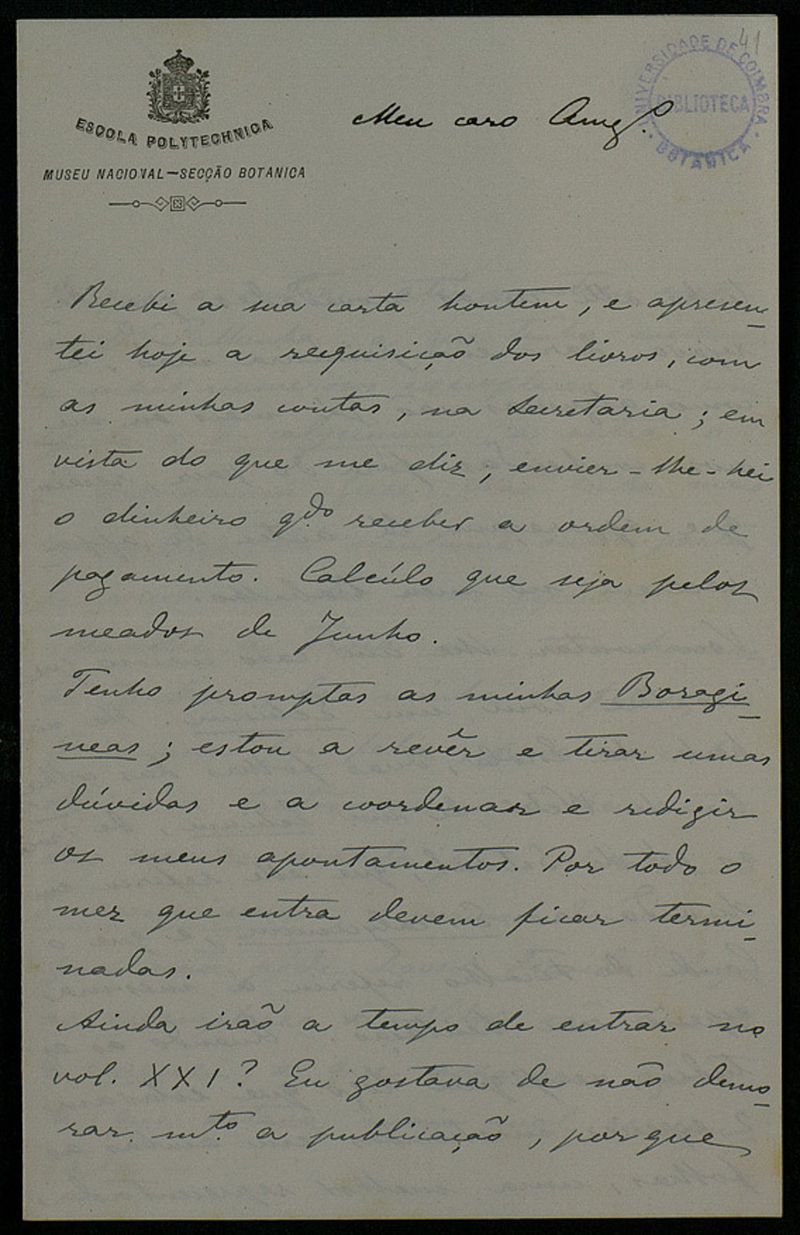 41
UNIVERSIDADE DE COIMBRA
BIBLIOTECA
BOTANICA
ESCOLA POLYTECHNICA
MUSEU NACIONAL—SECÇÃO BOTANICA
Meu caro Amgº.
Recebi a sua carta hontem, e apresen-
tei hoje a reequisição dos livros, com
as minhas contas, na secretaria; em
vista do que me diz, envier-lhe-hei
o dinheiro qdo receber a ordem de
pagamento. Calcúlo que seja pelos
meados de Junho.
Tenho promptas as minhas Boragi-
neas; estou a revêr e tirar umas
dúvidas e a coordenar e redigir
os meus apontamentos. Por todo o
mez que entra devem ficar termi-
nadas.
Ainda irão a tempo de entrar no
vol. XXI? Eu gostava de não demo-
rar mto a publicação, porque